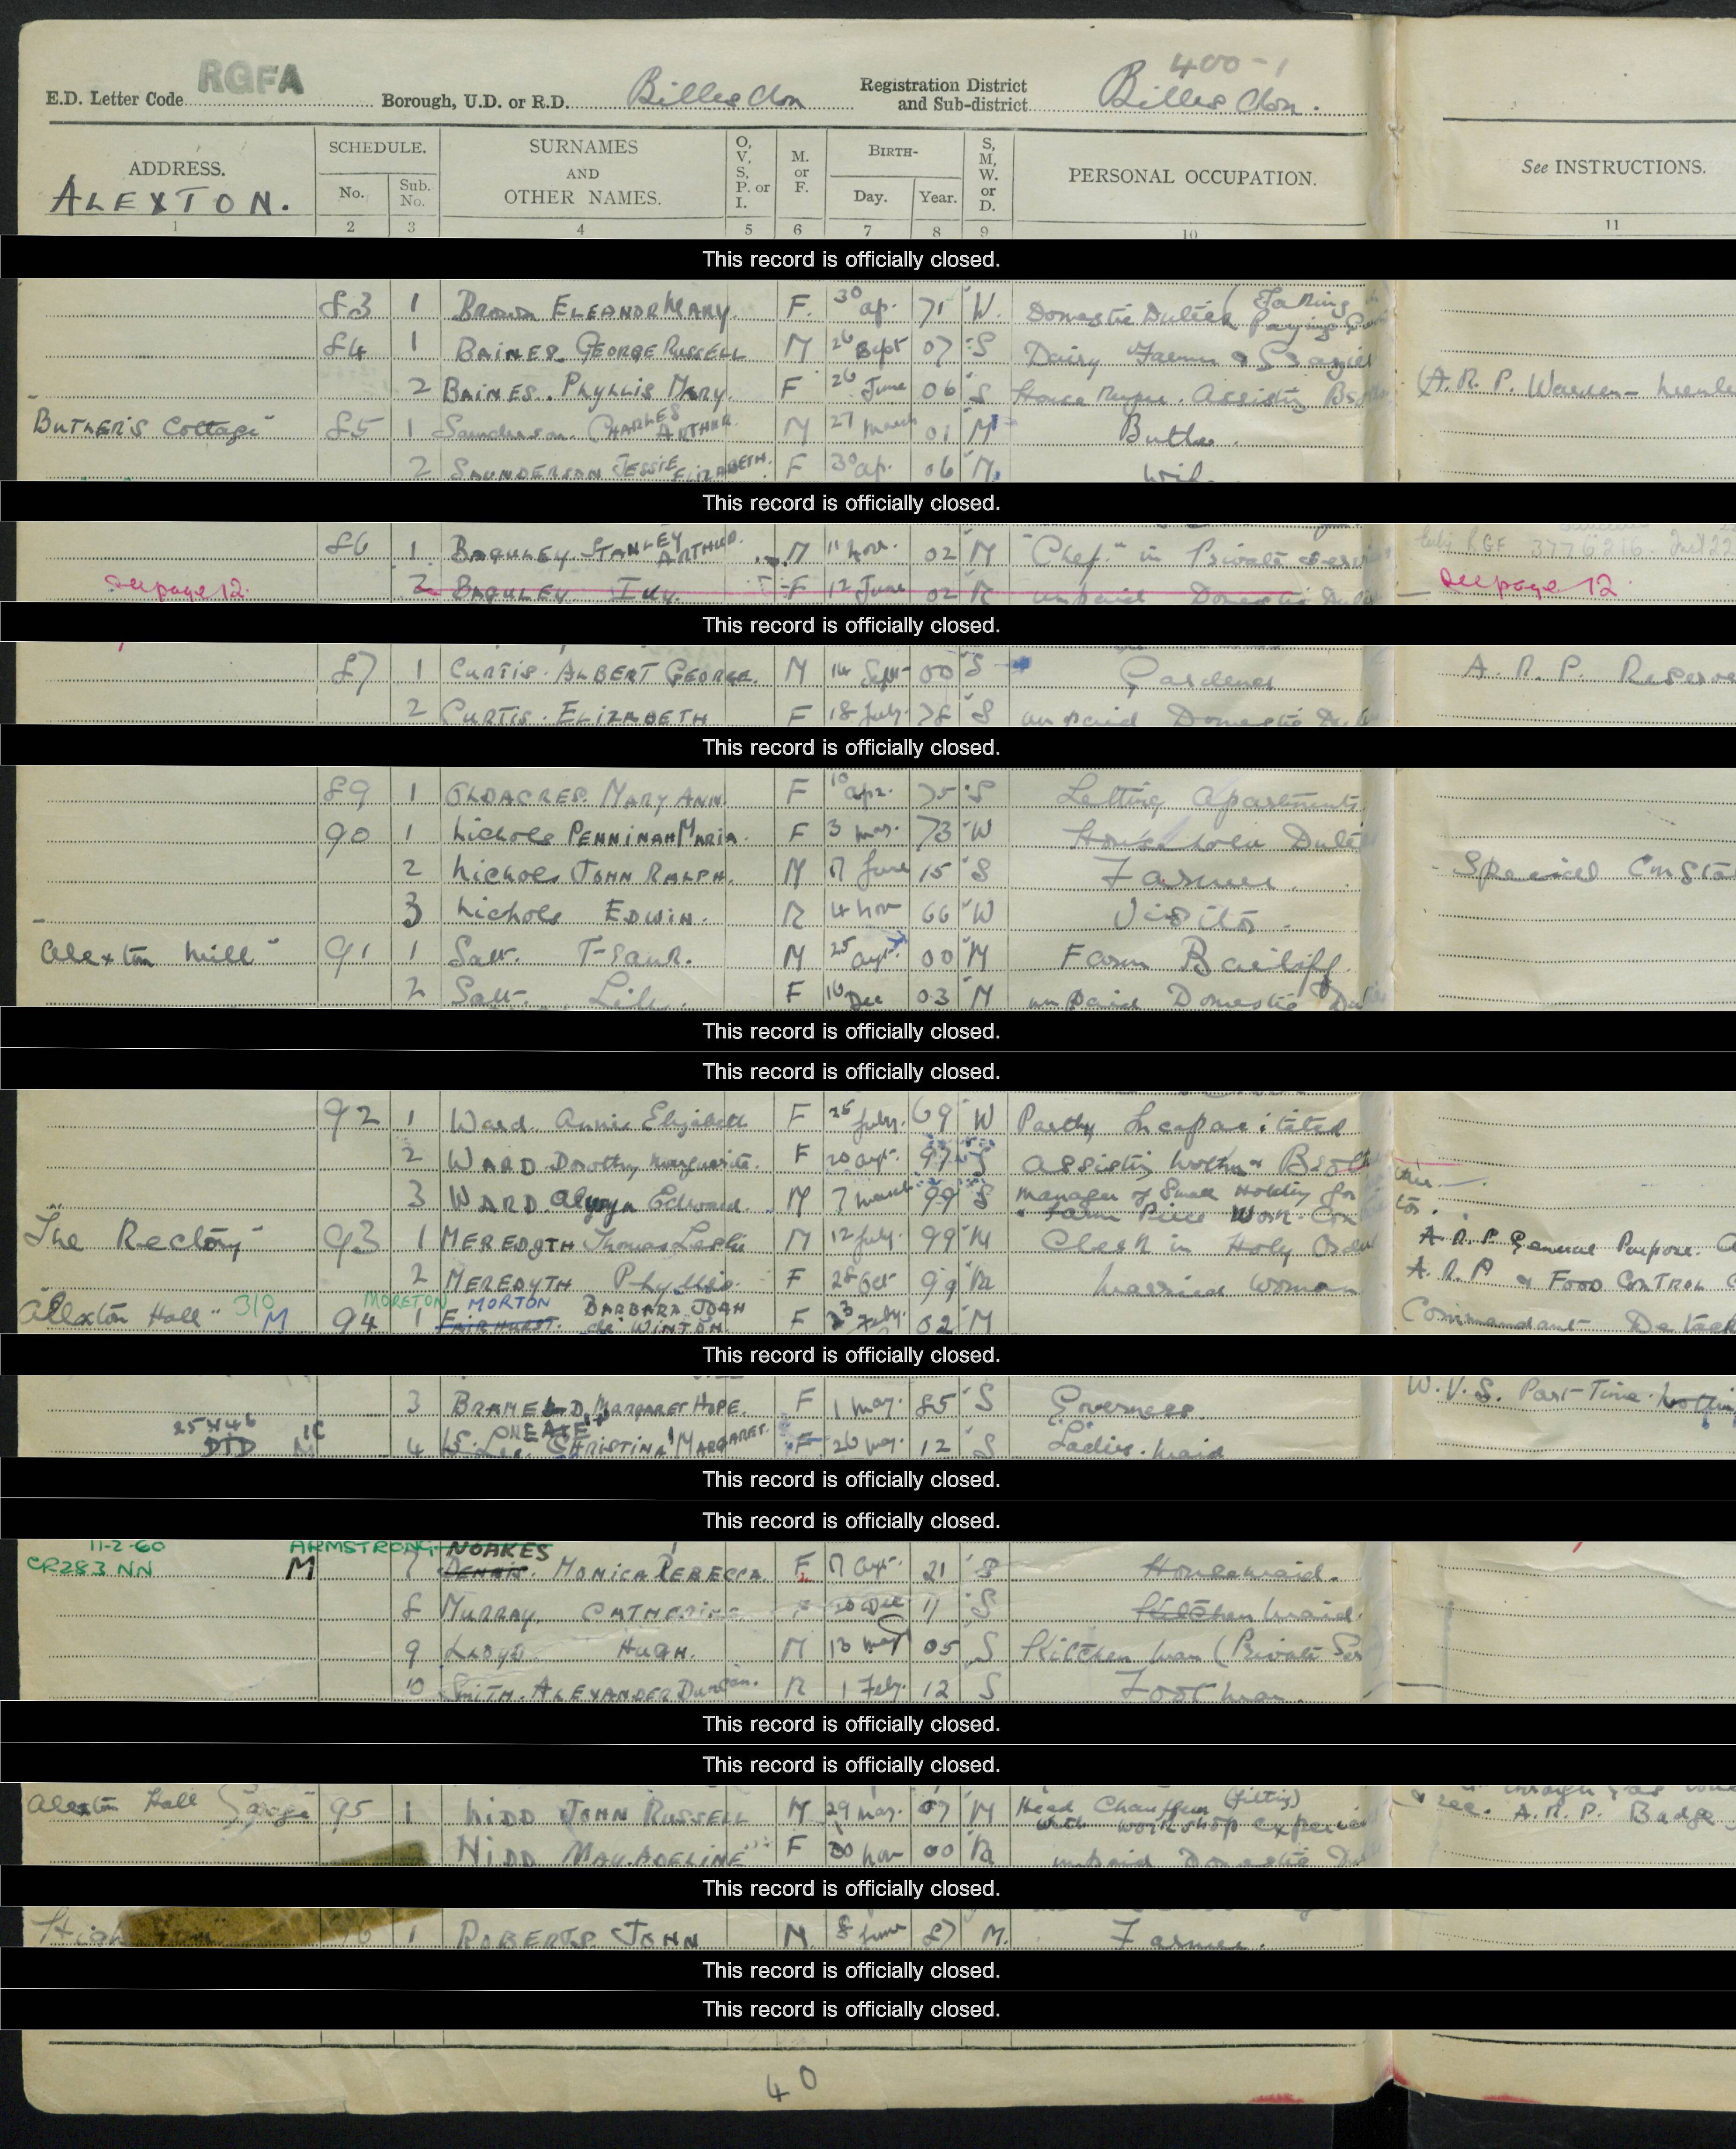 400-1
E.D. Letter Code RGFA Borough, U.D. or R.D. Billesdon Registration District and Sub-district Billesdon.
ADDRESS. SCHEDULE. No. Sub. No. SURNAMES AND OTHER NAMES. O, V, S, P. or I. M. or F. BIRTH- Day. Year. S, M, W. or D. PERSONAL OCCUPATION. See INSTRUCTIONS.
ALEXTON.
1 2 3 4 5 6 7 8 9 10 11
This record is officially closed.
83 1 BROWN ELEANOR MARY. F. 30 ap. 71 W. Domestic Duties (Taking Paying
84 1 BAINES GEORGE RUSSELL M 26 Sept 07 S Dairy Farmer & Grazier
2 BAINES. PHYLLIS MARY. F 26 June 06 S House Keeper. Assisting (A.R.P. Warden-
"BUTLER'S Cottage" 85 1 Saunderson. CHARLES ARTHUR. M 27 March 01 M Butler.
2 SAUNDERSON JESSIE ELIZABETH. F 30 ap. 06 M. Wife.
This record is officially closed.
86 1 BAGULEY STANLEY ARTHUR. M 11 Nov. 02 M "Chef" in Private RGF 3776216
See page 12. 2 BAGULEY IVY. F 12 June 02 M unpaid Domestic See page 12.
This record is officially closed.
87 1 CURTIS. ALBERT GEORGE. M 14 Sept 00 S Gardener A.R.P. Reserve
2 CURTIS. ELIZABETH F 18 July. 78 S unpaid Domestic
This record is officially closed.
89 1 OLDACRES. MARY ANN F 10 apr. 75 S Letting apartments
90 1 Nichols PENNINAH MARIA. F 3 mar. 73 W Household Duties
2 Nichols JOHN RALPH. M 17 June 15 S Farmer. Special
3 Nichols EDWIN. M 4 Nov 66 W Visitor.
Alexton Mill" 91 1 Salt. M 25 00 M Farm Bailiff.
2 Salt. F 16 Dec 03 M unpaid Domestic
This record is officially closed.
This record is officially closed.
92 1 Ward. Annie Elizabeth F 25 July. 69 W Partly Incapacitated
2 WARD Dorothy Marguerite. F 20 97 S assisting Mother & Brother
3 WARD Alwyn Edward. M 7 March 99 S Manager of Small Holding for
Farm Piece Work
"The Rectory" 93 1 MEREDYTH Thomas Leslie M 12 July. 99 M Clerk in Holy Orders A.R.P. General Purpose.
2 MEREDYTH Phyllis. F 28 Oct 99 M Married Woman A.R.P & FOOD CONTROL
MORETON MORTON
Allexton Hall" 310 M 94 1 FAIRHURST. BARBARA JOAN de WINTON F 23 Feby. 02 M Commandant
This record is officially closed.
3 BRAMELD MARGARET HOPE. F 1 May. 85 S Governess. W.V.S. Part-Time
25446 DTD M 4 CHRISTINA MARGARET. F 26 12 S Ladies. Maid
This record is officially closed.
This record is officially closed.
11-2-60 ARMSTRONG NOAKES
CR283 NN M 7 DENNIS. MONICA REBECCA. F 17 21 S Housemaid.
8 MURRAY. CATHERINE 20 Dec 11 S Kitchen Maid.
9 LLOYD HUGH. M 13 May 05 S Kitchen Man (Private
10 SMITH. ALEXANDER Duncan. M 1 Feby. 12 S Footman.
This record is officially closed.
This record is officially closed.
Alexton Hall 95 1 NIDD JOHN RUSSELL M 29 07 M Head Chauffeur (fitting) with workshop A.R.P. Badge
NIDD MAY. ADELINE F 20 Nov 00 M unpaid Domestic
This record is officially closed.
High 1 ROBERTS. JOHN M. 8 June 87 M. Farmer.
This record is officially closed.
This record is officially closed.
40